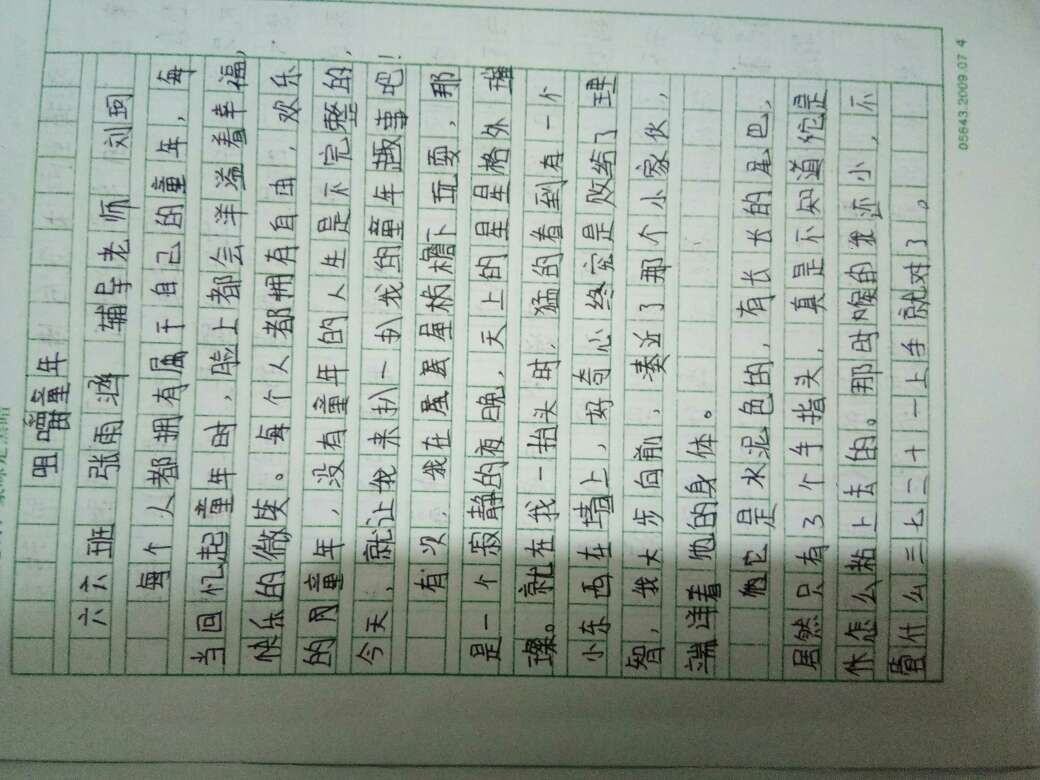 咀嚼童年
六六班 张雨涵 辅导老师 刘珂
每个人都拥有属于自己的童年,每
当回忆起童年时,脸上都会洋溢着幸福,
快乐的微笑。每个人都拥有自由,欢乐
的童年,没有童年的人生是不完整的,
今天,就让我来扒一扒我的童年趣事吧!
有次,我在屋檐下玩耍,那
是一个寂静的夜晚,天上的星星格外璀
璨。就在我一抬头时,猛的看到有一个
小东西在墙上,好奇心终究是败给了理
智,我大步向前,凑近了那个小家伙,
端详着她的身体。
它是水泥色的,有长长的尾巴,
居然只有3个手指头,真是不知道它是
怎么粘上去的。那时候的我还小,不
管什么三七二十一上手就对了。
05643.2009.07 4